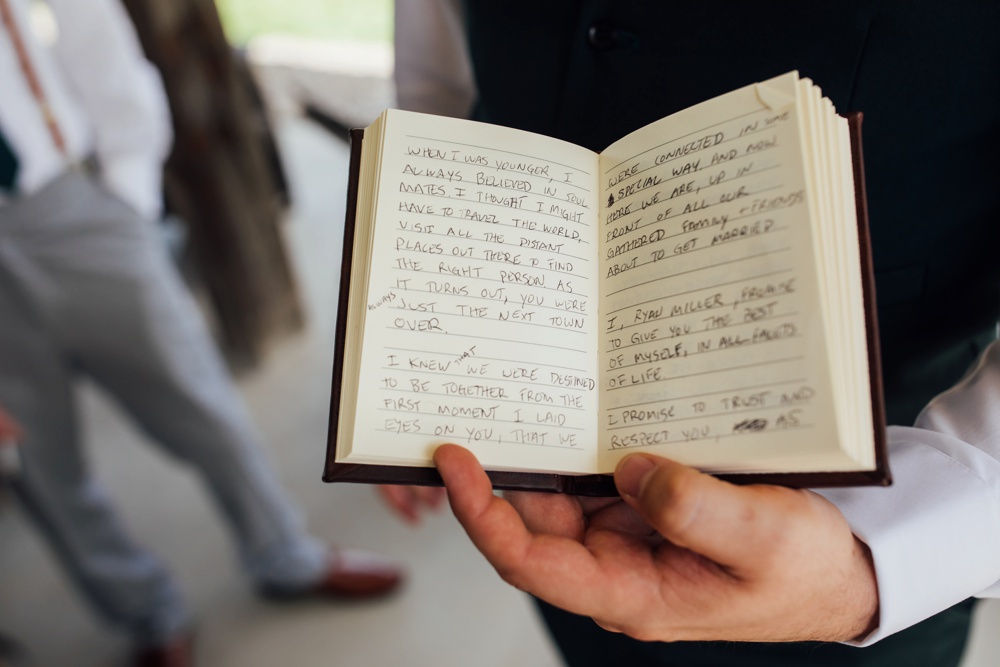 WHEN I WAS YOUNGER, I
ALWAYS BELIEVED IN SOUL
MATES. I THOUGHT I MIGHT
HAVE TO TRAVEL THE WORLD,
VISIT ALL THE DISTANT
PLACES OUT THERE TO FIND
THE RIGHT PERSON. AS
IT TURNS OUT, YOU WERE
ALWAYS JUST THE NEXT TOWN
OVER.
I KNEW THAT WE WERE DESTINED
TO BE TOGETHER FROM THE
FIRST MOMENT I LAID
EYES ON YOU, THAT WE
WERE CONNECTED IN SOME
SPECIAL WAY, AND NOW
HERE WE ARE, UP IN
FRONT OF ALL OUR
GATHERED FAMILY + FRIENDS
ABOUT TO GET MARRIED.
I, RYAN MILLER, PROMISE
TO GIVE YOU THE BEST
OF MYSELF, IN ALL FACETS
OF LIFE.
I PROMISE TO TRUST AND
RESPECT YOU, AS